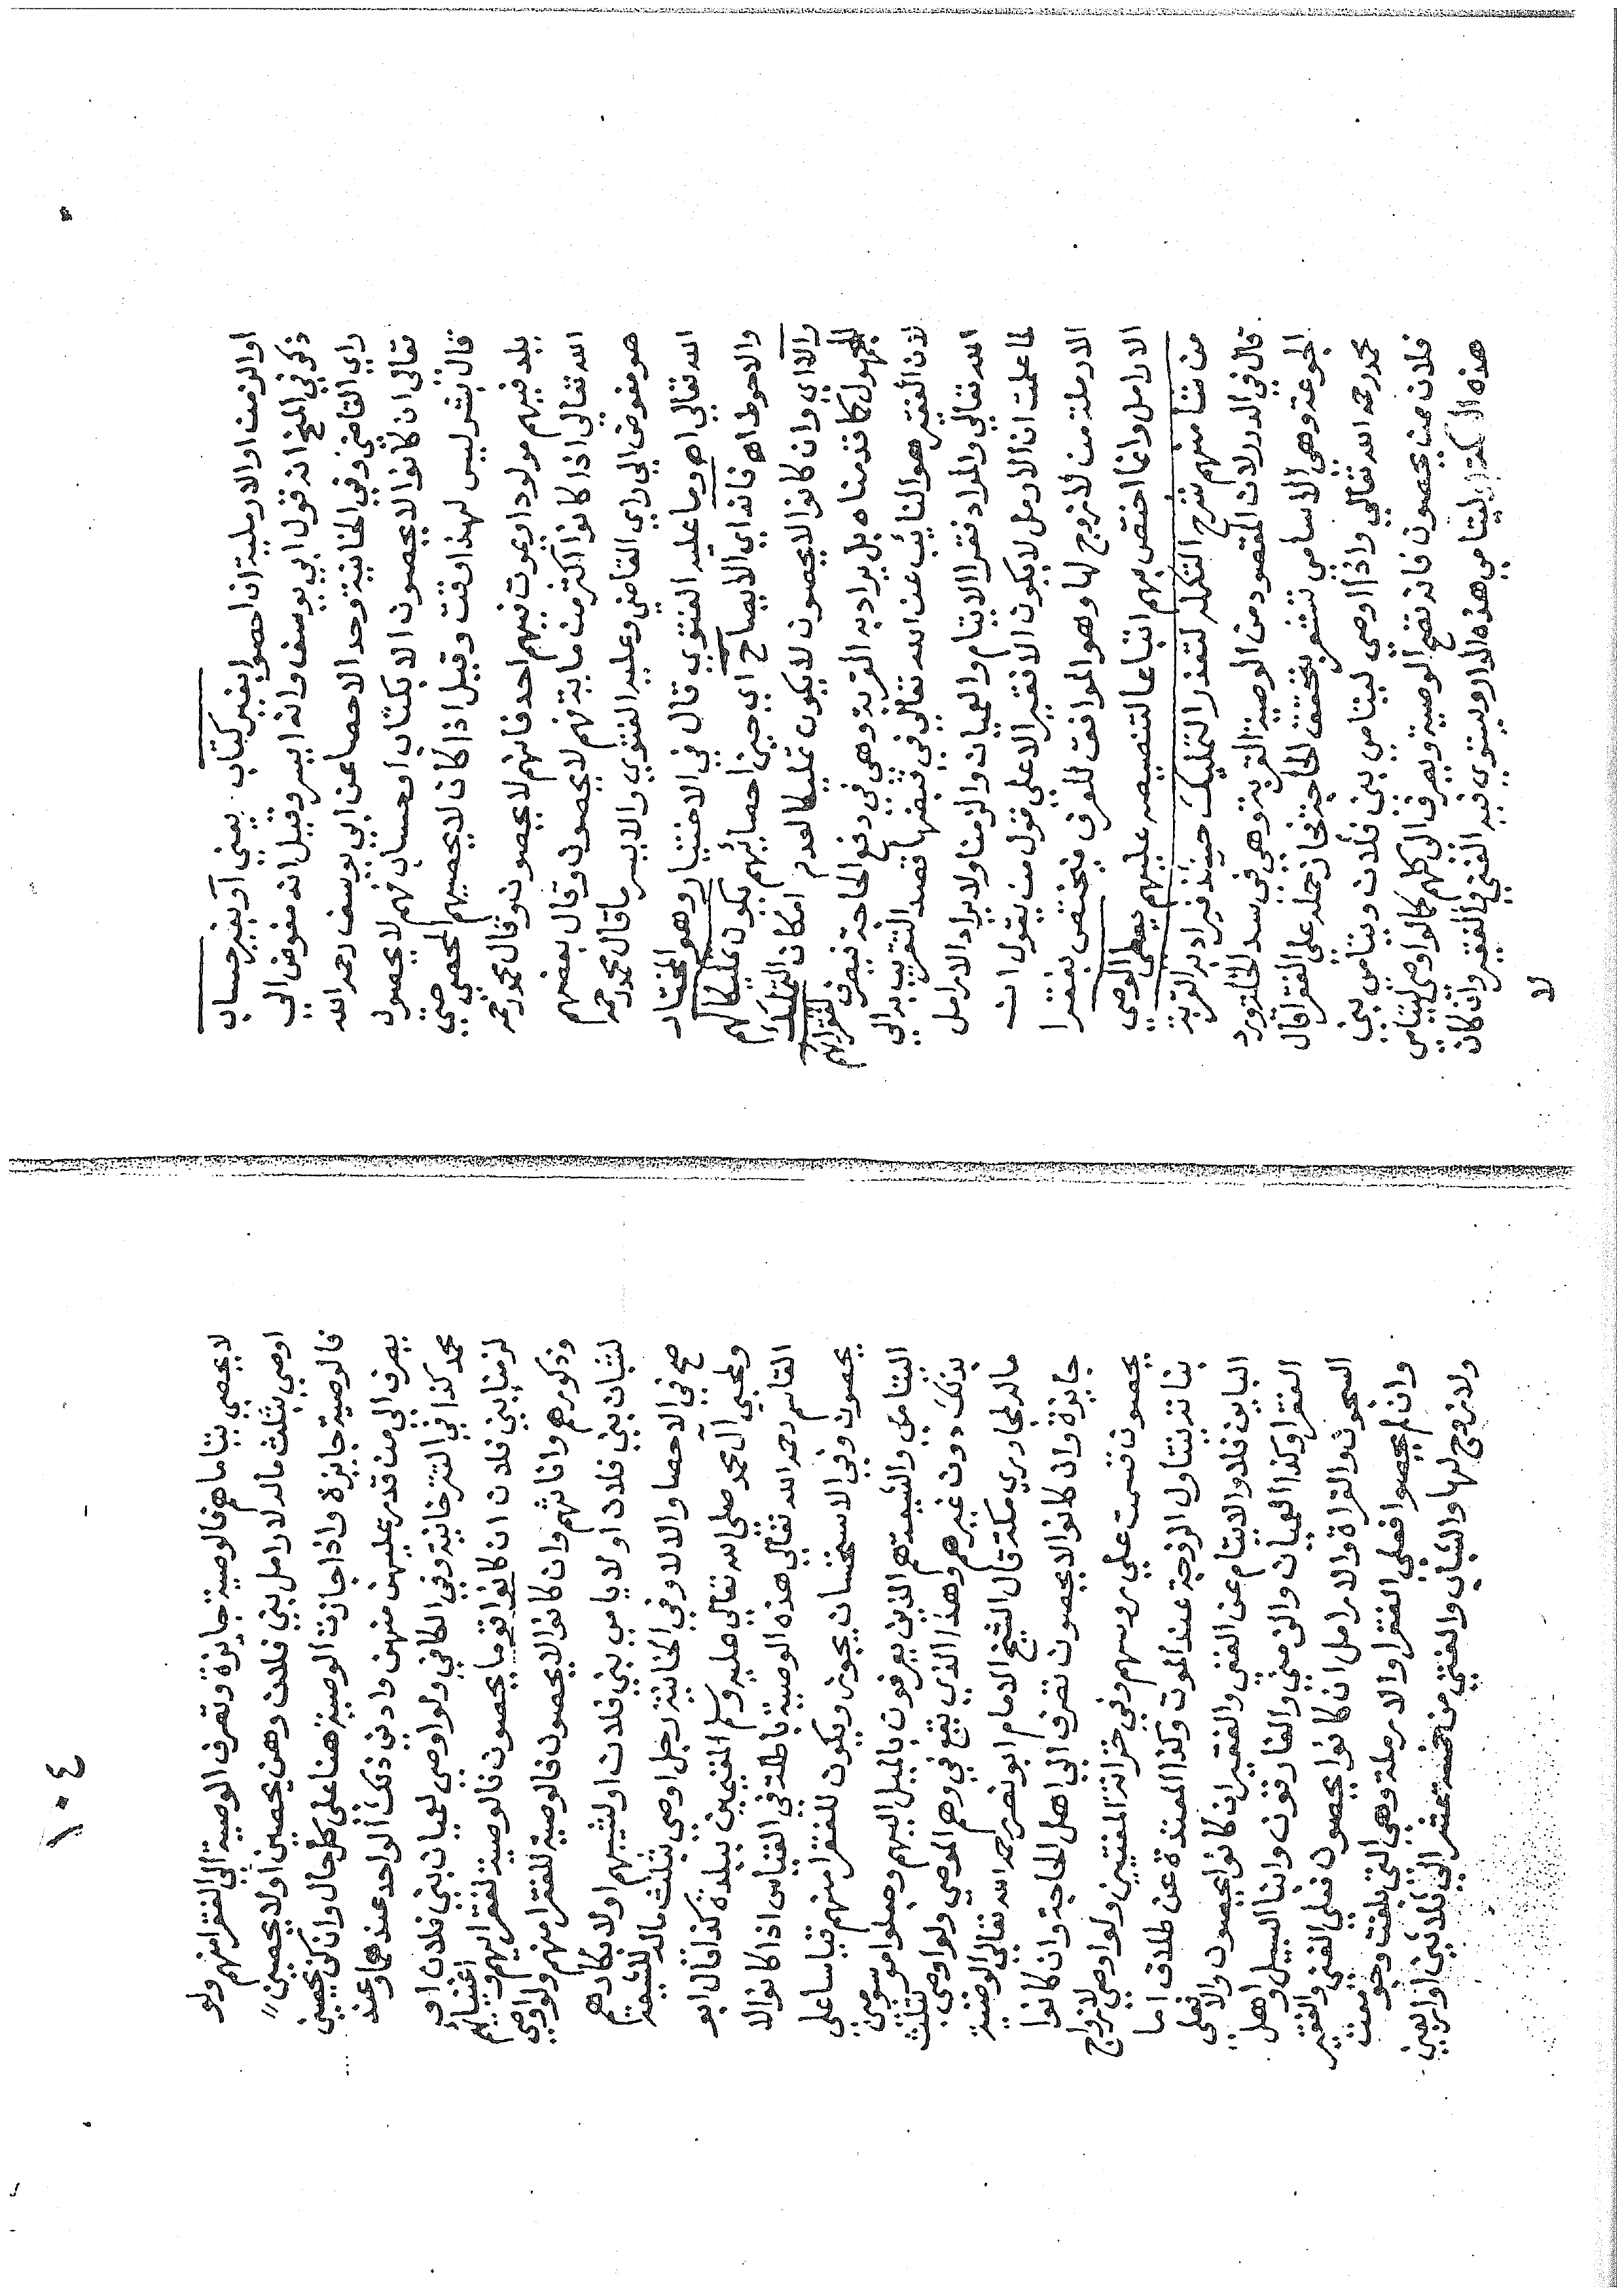 او الزمن او الارملية ان احصوا بغير كتاب يعني او بغير حساب
ذكر في المنح انه قول ابي يوسف وانه ايسر وقيل انه مفوض الي
راي القاضي وفي الخانية وحد الاحصا عن ابي يوسف رحمه الله
تعالي ان كانوا لا يحصون الا بكتاب او حساب فهم لا يحصون
قال بشر ليس لهذا وقت وقيل اذا كان لا يحصيهم المحصي حتي
يلد فيهم مولود او يموت فيهم احد فانهم لا يحصون وقال محمد رحمه
الله تعالي اذا كانوا اكثر من ماية فهم لا يحصون وقال بعضهم
هو مفوض الي راي القاضي وعليه الفتوي والايسر ما قال محمد رحمه
الله تعالي اه وما عليه الفتوي قال في الاختيار وهو المختار
والاحوط اه فانه اي الايصاح اي حين احصايهم يكون تمليكا لهم
والا اي وان كانوا لا يحصون لا يكون تمليكا لعدم امكان التمليك
للمجهول كما قدمناه بل يراد به القربة وهي في دفع الحاجة فيصرف لفقرايهم
لان الفقير هو النايب عن الله تعالي في قبضها قصد التقرب به الي
الله تعالي والمراد فقرا الايتام والعميان والزمنا ولا يراد الارامل
لما علمت ان الارمل لا يكون الا فقيرا الا علي قول من يقول ان
الارملة من لا زوج لها وهو الموافق للعرف فيختص بفقرا
الارامل وانما اختص بهم اتباعا لتنصيصه عليهم يعطي الوصي
من شا منهم شرح التكملة لتعذر التمليك حينئذ فيراد به القربة
قال في الدرر لان المقصود من الوصية القربة وهي في سد الخلة ورد
الجوعة وهي الاسامي تشعر بتحقق الحاجة فجاز حمله علي الفقرا قال
محمد رحمه الله تعالي واذا اوصي ليتامي بني فلان ويتامي بني
فلان ممن يحصون فانه تصح الوصية ويصرف الي كلهم كما لو اوصي ليتامي
هذه السكة او ليتامي هذه الدار ويستوي فيه الغني والفقير وان كان
لا
١٠٤
لا يحصي يتاماهم فالوصية جايزة وتصرف الوصية الي الفقرا منهم ولو
اوصي بثلث ماله لارامل بني فلان وهن يحصين او لا يحصين
فالوصية جايزة واذا جازت الوصية هنا علي كل حال وان كن يحصين
يصرف الي من قدر عليهن منهن وادني ذلك الواحد عندهما وعند
محمد كذا في التترخانية وفي الكافي ولو اوصي لعميان بني فلان او
لزمنا بني فلان ان كانوا قوما يحصون فالوصية لفقرايهم واغنيايهم
وذكورهم واناثهم وان كانوا لا يحصون فالوصية للفقرا منهم ولو اوصي
لشبان بني فلان او لايامي بني فلان او لثيبهم او لابكارهم
صح في الاحصا والا لا وفي الخانية رجل اوصي بثلث ماله للشيعة
ولمحبي آل محمد صلي الله تعالي عليه وسلم المقيمين ببلدة كذا قال ابو
القاسم رحمه الله تعالي هذه الوصية باطلة في القياس اذا كانوا لا
يحصون وفي الاستحسان يجوز ويكون للفقرا منهم قياسا علي
اليتامي والشيعة هم الذين يعرفون بالميل اليهم وجعلوا موسومين
بذلك دون غيرهم وهذا الذي يقع في وهم الموصي ولو اوصي بثلث
ماله لمجاوري مكة قال الشيخ الامام ابو نصر رحمه الله تعالي الوصية
جايزة وان كانوا لا يحصون تصرف الي اهل الحاجة وان كانوا
يحصون قسمت علي روسهم وفي خزانة المفتيين ولو اوصي لازواج
بناته يتناول الزوجة عند الموت وكذا المعتدة عن طلاق اما
الباين فلا والايتام عن الغني والفقير ان كانوا يحصون والا فعلي
الفقرا وكذا العميان والزمني والغارقون وابنا السبيل واهل
السجون والقراة والارامل ان كانوا يحصون فعلي الغني والفقير
وان لم يحصوا فعلي الفقرا والارملة وهي التي بلغت وجومعت
ولا زوج لها والشاب والفتي من خمسة عشر الي ثلاثين او اربعين